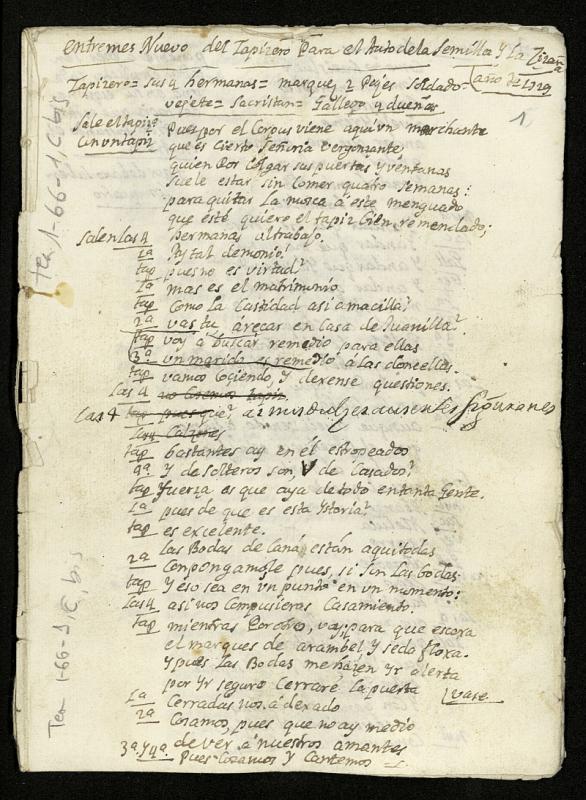 Entremes Nuevo del Tapizero Para el Auto dela Semilla y La Zizaña
año de 1729
Tapizero = sus 4 hermanas = marques 2 Pajes Soldado =
vejete = Sacristan = Gallego y dueñas
1
Sale el tapizº
Con un tapiz
Pues por el Corpus viene aqui un marchante
que es Cierto Señoria Vergonzante
quien Por Colgar sus puertas y ventanas
Suele estar sin Comer quatro Semanas:
para quitar La mosca a este menguado
que esté quiero el tapiz bien remendado;
Salen Las 4 hermanas al trabajo.
1ª Ay tal demonio!
tap pues no es virtud?
1ª mas es el matrimonio.
tap Como La Castidad asi amacilla?
2ª vas tu, à recas en Casa de Juanilla?
tap voy a buscar remedio para ellas
3ª un marido es remedio à las donzellas.
tap vamos Cogiendo, y dexense questiones.
Las 4 no Cosemos tapiz
Las 4
tap pues que?
Las 4 Calzones
tap bastantes ay en él estropeados
4ª Y de Solteros son, V de Casados?
tap fuerza es que aya de todo en tanta Gente.
1ª pues de que es esta Ystoria?
tap es excelente.
Las Bodas de Caná, están aqui todas
2ª Conpongamosle pues, si Son Las bodas
tap Y eso sea en ùn punto en un momento:
Las 4 asi nos Compusieras Casamiento.
tap mientras voy para que escoxa
el marques de arambel y seda floxa.
Y pues Las Bodas me hazen Yr alerta
por Yr seguro Cerraré La puerta vase.
1ª Cerradas nos à dexado
2ª Cosamos, pues que no ay medio
de ver à nuestros amantes
3ª y 4ª Pues Cosamos y Cantemos
Tea 1-66-1 C, bis
Tea 1-66-1 C, bis